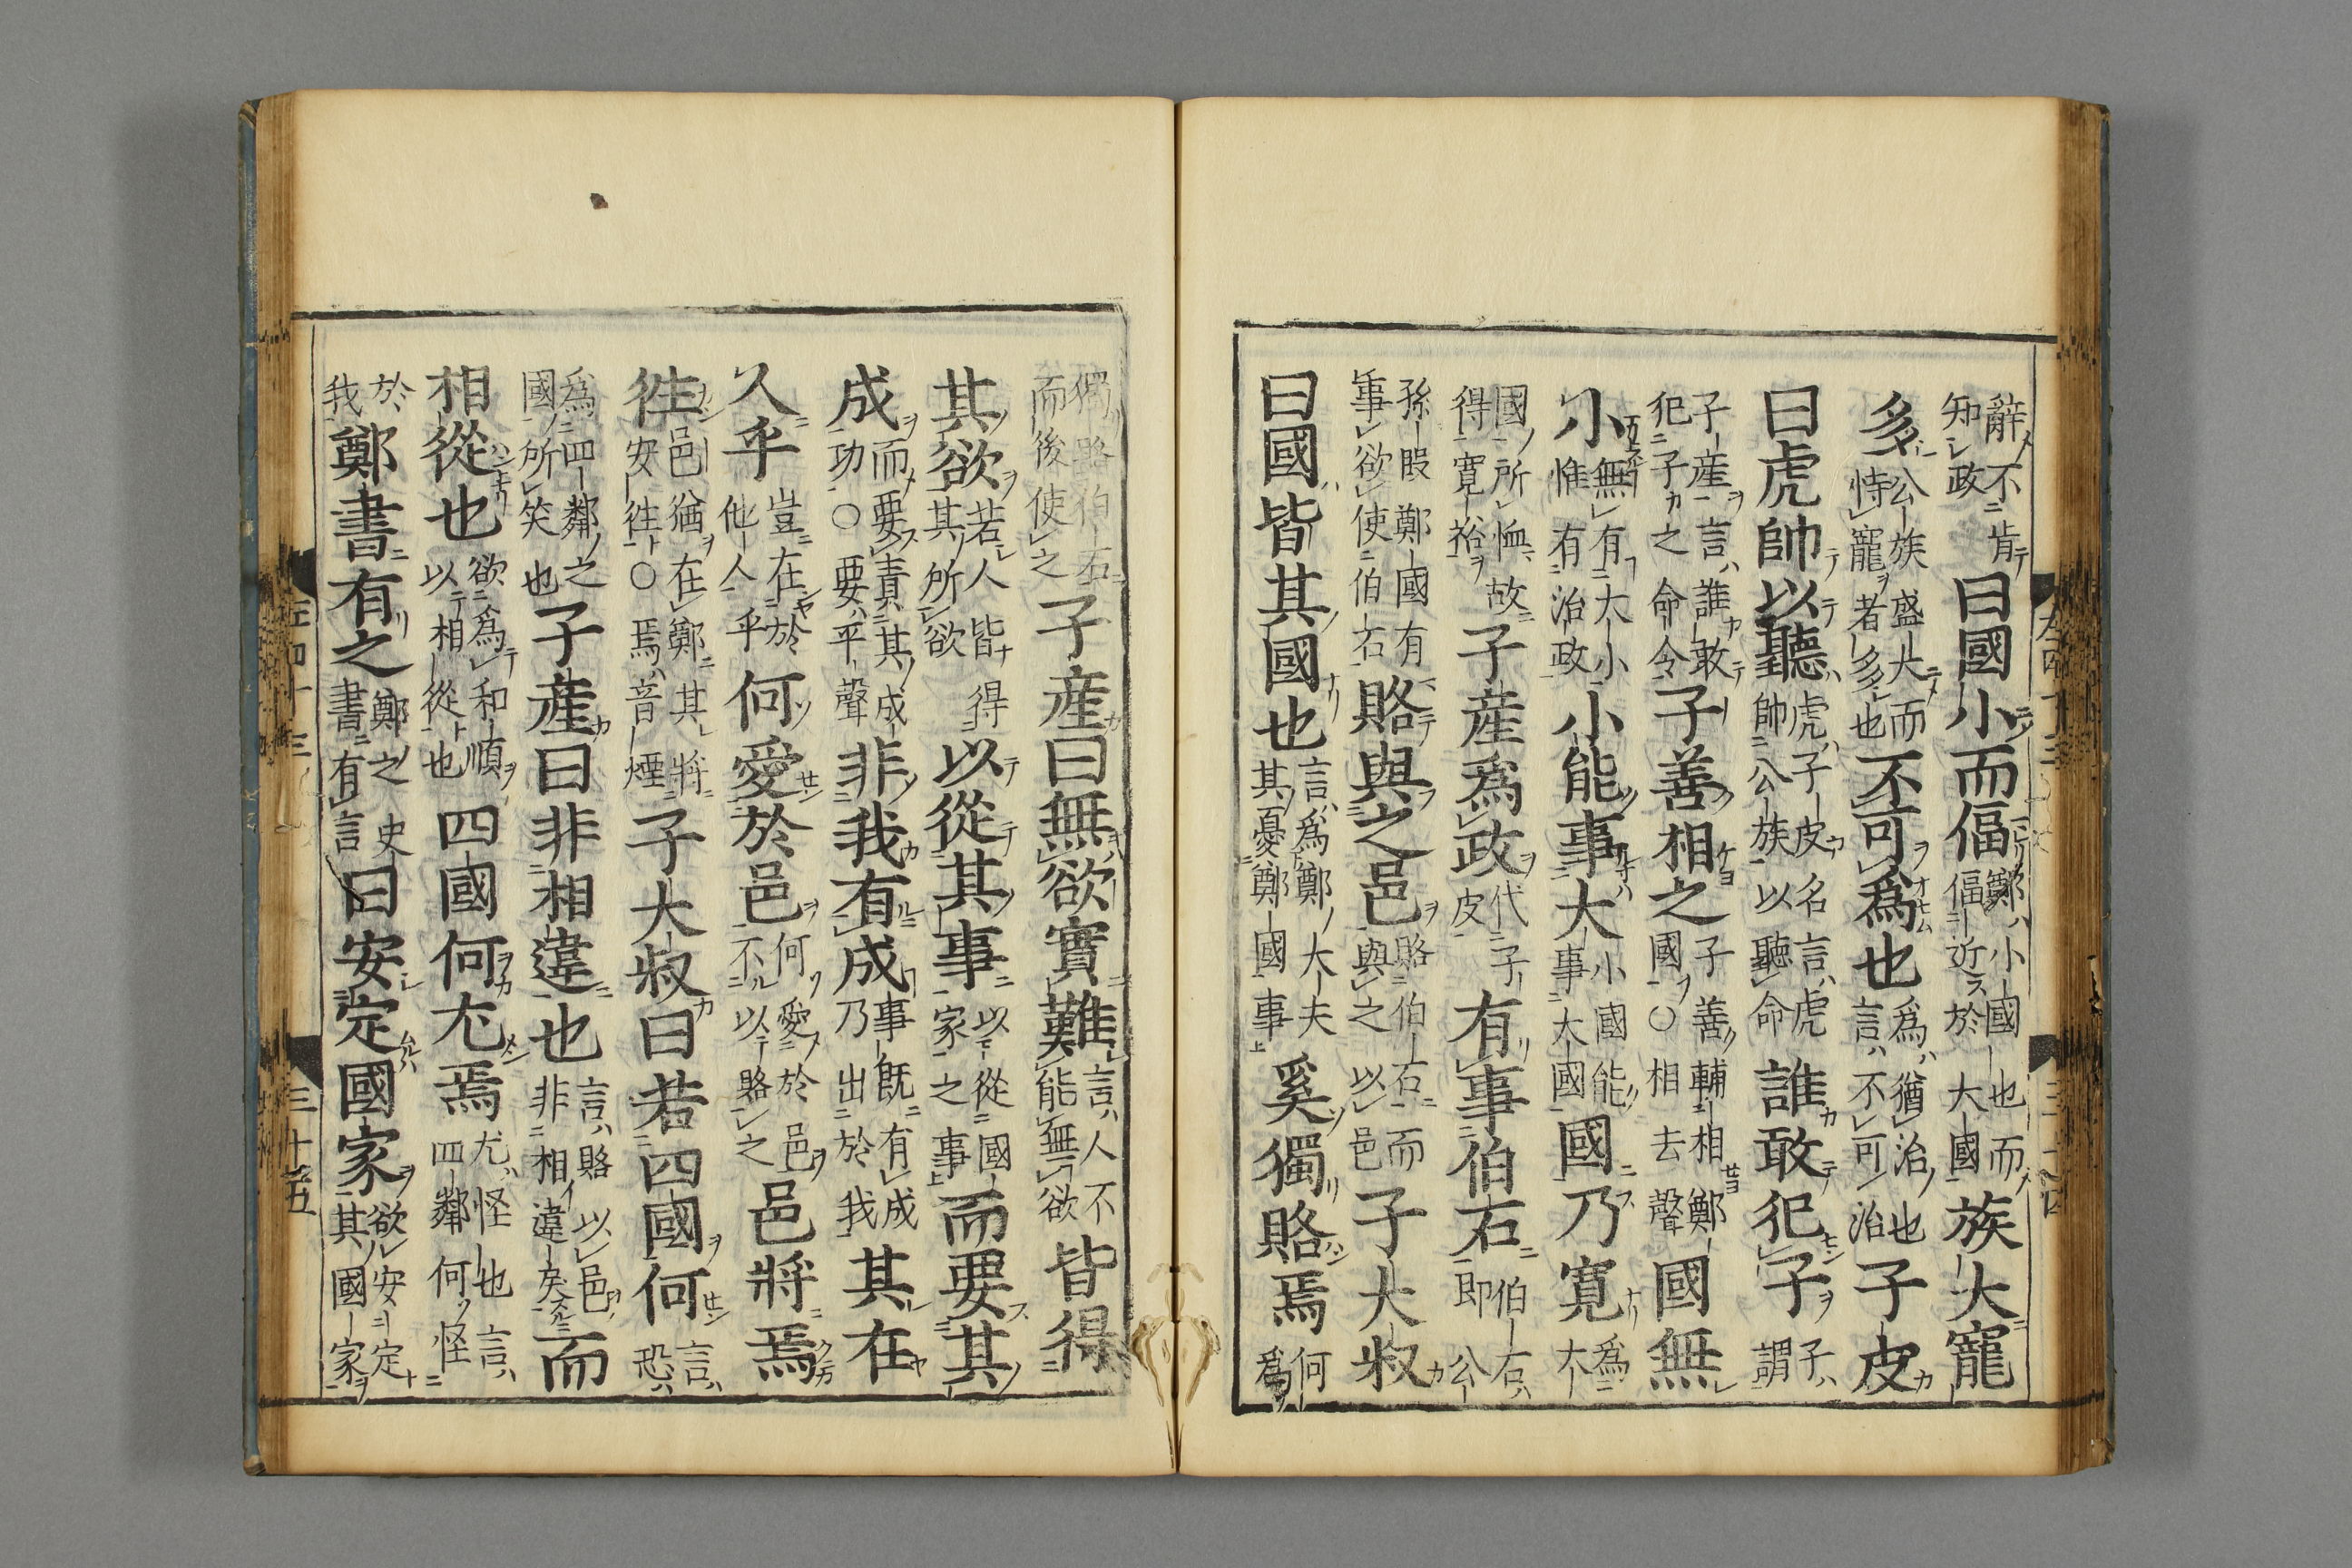 辭不肯知政曰國小而偪鄭小國也而偪近於大國族大寵
多公族盛大而恃寵者多也不可爲也爲猶治也言不可治子皮
曰虎帥以聽虎子皮名言虎帥公族以聽命誰敢犯子子謂
子產言誰敢犯子之命令子善相之子善輔相鄭國○相去聲國無
小無有大小惟有治政小能事大小國能事大國國乃寬爲大
國所恤故得寬裕子產爲政代子皮有事伯石伯石即公
孫段鄭國有事欲使伯石賂與之邑賂伯石而與之以邑子大叔
曰國皆其國也言爲鄭大夫其憂鄭國事奚獨賂焉何爲
獨賂伯石而後使之子產曰無欲實難言人不能無欲皆得
其欲若人皆得其所欲以從其事以從國家之事而要其
成而要責其成功○要平聲非我有成事既有成乃出於我其在
人乎豈在於他人乎何愛於邑何愛於邑不以賂之邑將焉
往邑猶在鄭其將安往○焉音煙子大叔曰若四國何言恐
爲四鄰之國所笑也子產曰非相違也言賂以邑非相違矣而
相從也欲爲和順以相從也四國何尤焉尤怪也言四鄰何怪
於我鄭書有之鄭之史書有言曰安定國家欲安定其國家
三十五